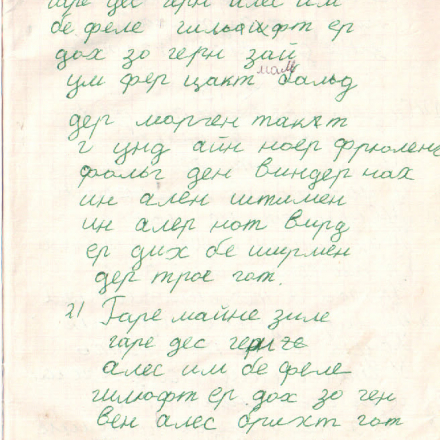 гаре дес герн алес им
бе феле гильфт ер
дох зо герн зай
ум фер цакт бальд
дер морген такт
г унд айн ноер фрюленс
фольг ден виндер нах
ин ален штимен
ин алер нот вирд
ер дих бе ширмен
дер трое гот.
2) Гаре майне зиле
гаре дес герн
алес им бе феле
гилюфт ер дох зо ген
вен алес брихт гот